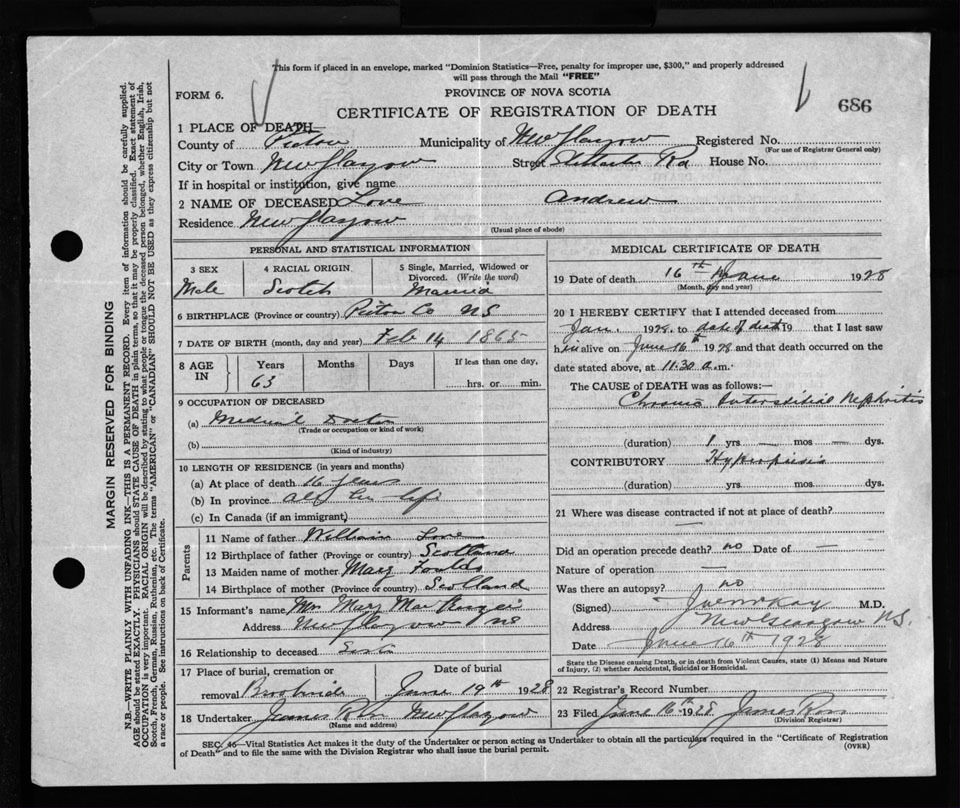 This form if placed in an envelope, marked "Dominion Statistics—Free, penalty for improper use, $300," and properly addressed
will pass through the Mail "FREE"
FORM 6.
PROVINCE OF NOVA SCOTIA
CERTIFICATE OF REGISTRATION OF DEATH
686
1 PLACE OF DEATH
County of Pictou Municipality of New Glasgow Registered No.
(For use of Registrar General only)
City or Town New Glasgow Street Rd House No.
If in hospital or institution, give name
2 NAME OF DECEASED Love Andrew
Residence New Glasgow
(Usual place of abode)
PERSONAL AND STATISTICAL INFORMATION
3 SEX
Male
4 RACIAL ORIGIN
Scotch
5 Single, Married, Widowed or
Divorced. (Write the word)
Married
6 BIRTHPLACE (Province or country) Pictou Co NS
7 DATE OF BIRTH (month, day and year) Feb 14 1865
8 AGE
IN
Years
63
Months
Days
If less than one day,
hrs. or min.
9 OCCUPATION OF DECEASED
(a) Medical Doctor
(Trade or occupation or kind of work)
(b)
(Kind of industry)
10 LENGTH OF RESIDENCE (in years and months)
(a) At place of death 16 years
(b) In province all his life
(c) In Canada (if an immigrant)
Parents
11 Name of father William Love
12 Birthplace of father (Province or country) Scotland
13 Maiden name of mother Mary Foulds
14 Birthplace of mother (Province or country) Scotland
15 Informant's name Mrs Mary
Address New Glasgow NS
16 Relationship to deceased Sister
17 Place of burial, cremation or
removal
Date of burial
June 19th 1928
18 Undertaker James New Glasgow
(Name and address)
MEDICAL CERTIFICATE OF DEATH
19 Date of death 16th June 1928
(Month, day and year)
20 I HEREBY CERTIFY that I attended deceased from
Jan. 1928. to date of death 19 that I last saw
him alive on June 16th 1928 and that death occurred on the
date stated above, at 11.30 a.m.
The CAUSE of DEATH was as follows:—
Chronic Interstitial Nephritis
(duration) 1 yrs — mos — dys.
CONTRIBUTORY
(duration) yrs mos dys.
21 Where was disease contracted if not at place of death?
—
Did an operation precede death? no Date of —
Nature of operation —
Was there an autopsy? no
(Signed) McKay M.D.
Address New Glasgow NS.
Date June 16th 1928
State the Disease causing Death, or in death from Violent Causes, state (1) Means and Nature
of Injury, (2) whether Accidental, Suicidal or Homicidal.
22 Registrar's Record Number
23 Filed June 16th 1928 James
(Division Registrar)
SEC. 46—Vital Statistics Act makes it the duty of the Undertaker or person acting as Undertaker to obtain all the particulars required in the "Certificate of Registration
of Death" and to file the same with the Division Registrar who shall issue the burial permit.
(OVER)
MARGIN RESERVED FOR BINDING
N.B.—WRITE PLAINLY WITH UNFADING INK—THIS IS A PERMANENT RECORD. Every item of information should be carefully supplied.
AGE should be stated EXACTLY. PHYSICIANS should STATE CAUSE OF DEATH in plain terms, so that it may be properly classified. Exact statement of
OCCUPATION is very important. RACIAL ORIGIN will be described by stating to what people or tongue the deceased person belonged, whether English, Irish,
Scotch, French, German, Russian, Ruthenian, etc. The terms "AMERICAN" or "CANADIAN" SHOULD NOT BE USED as they express citizenship but not
a race or people. See instructions on back of Certificate.